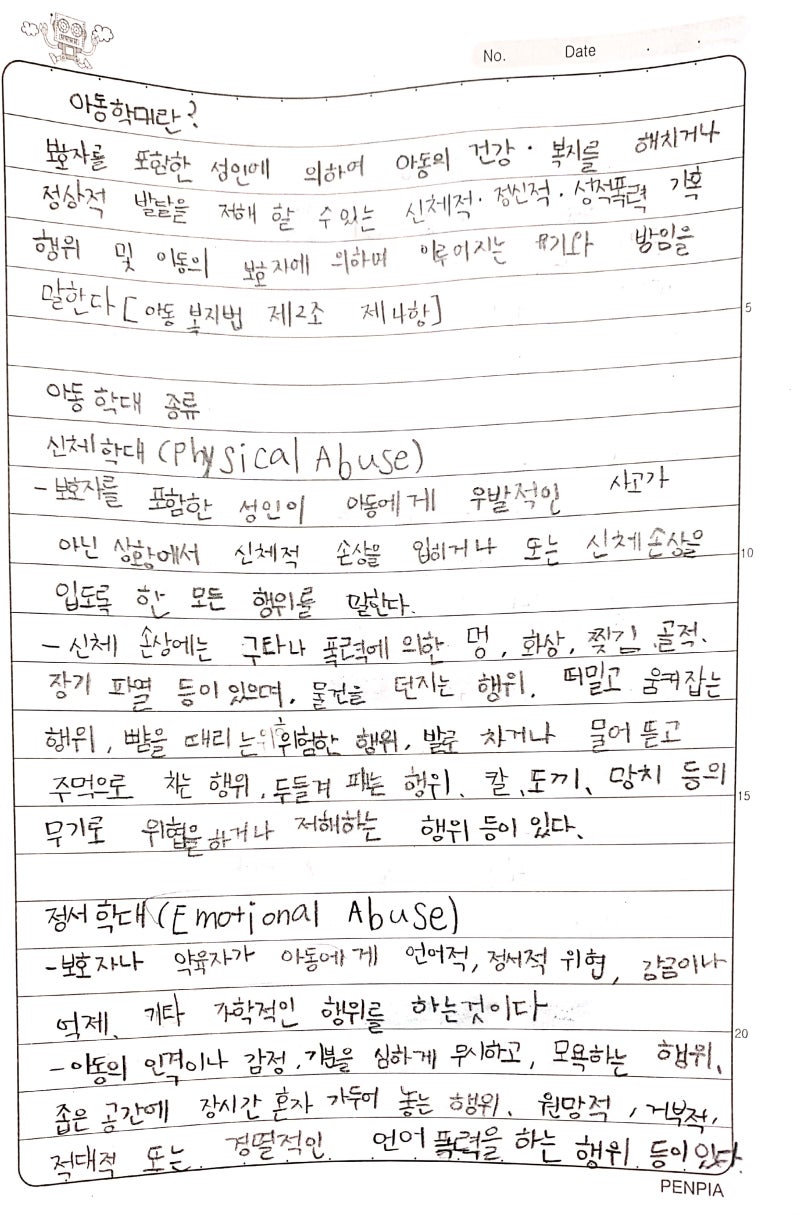 No. Date
아동학대란?
보호자를 포함한 성인에 의하여 아동의 건강·복지를 해치거나
정상적 발달을 저해 할 수 있는 신체적·정신적·성적폭력 가혹
행위 및 아동의 보호자에 의하며 이루어지는 유기와 방임을
말한다 [아동 복지법 제2조 제4항]
5
아동 학대 종류
신체학대 (Physical Abuse)
- 보호자를 포함한 성인이 아동에게 우발적인 사고가
아닌 상황에서 신체적 손상을 입히거나 또는 신체손상을
10
입도록 한 모든 행위를 말한다.
- 신체 손상에는 구타나 폭력에 의한 멍, 화상, 찢김, 골적.
장기 파열 등이 있으며, 물건을 던지는 행위. 떠밀고 움켜잡는
행위, 뺨을 때리는 위험한 행위, 발로 차거나 물어 뜯고
주먹으로 차는 행위, 두들겨 패는 행위, 칼, 도끼, 망치 등의
15
무기로 위협을 하거나 저해하는 행위 등이 있다.
정서학대 (Emotional Abuse)
- 보호자나 양육자가 아동에게 언어적, 정서적 위협, 감금이나
억제, 기타 가학적인 행위를 하는것이다
20
- 아동의 인격이나 감정, 기분을 심하게 무시하고, 모욕하는 행위,
좁은 공간에 장시간 혼자 가두어 놓는 행위, 원망적, 거부적,
적대적 또는 경멸적인 언어 폭력을 하는 행위 등이 있다.
PENPIA